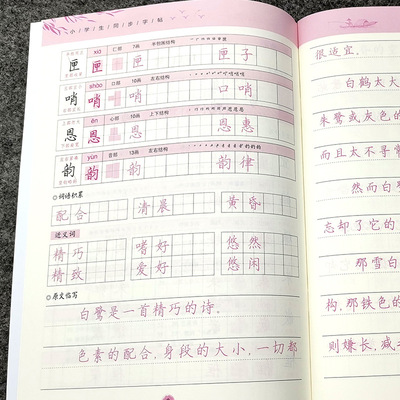 小学生同步字帖
xiá 匚部 7画 半包围结构
匣 匣 匣 匣子
shào 口部 10画 左右结构
哨 哨 哨 口哨
ēn 心部 10画 上下结构
恩 恩 恩 恩惠
yùn 音部 13画 左右结构
韵 韵 韵 韵律
词语积累
配合 清晨 黄昏
近义词
精巧 嗜好 悠然
精致 爱好 悠闲
原文临写
白鹭是一首精巧的诗.
色素的配合,身段的大小,一切都
很适宜.
白鹤太大
朱鹭或灰色的
而且太不寻常
然而白鹭
忘却了它的
那雪白
构,那铁色的
则嫌长,减